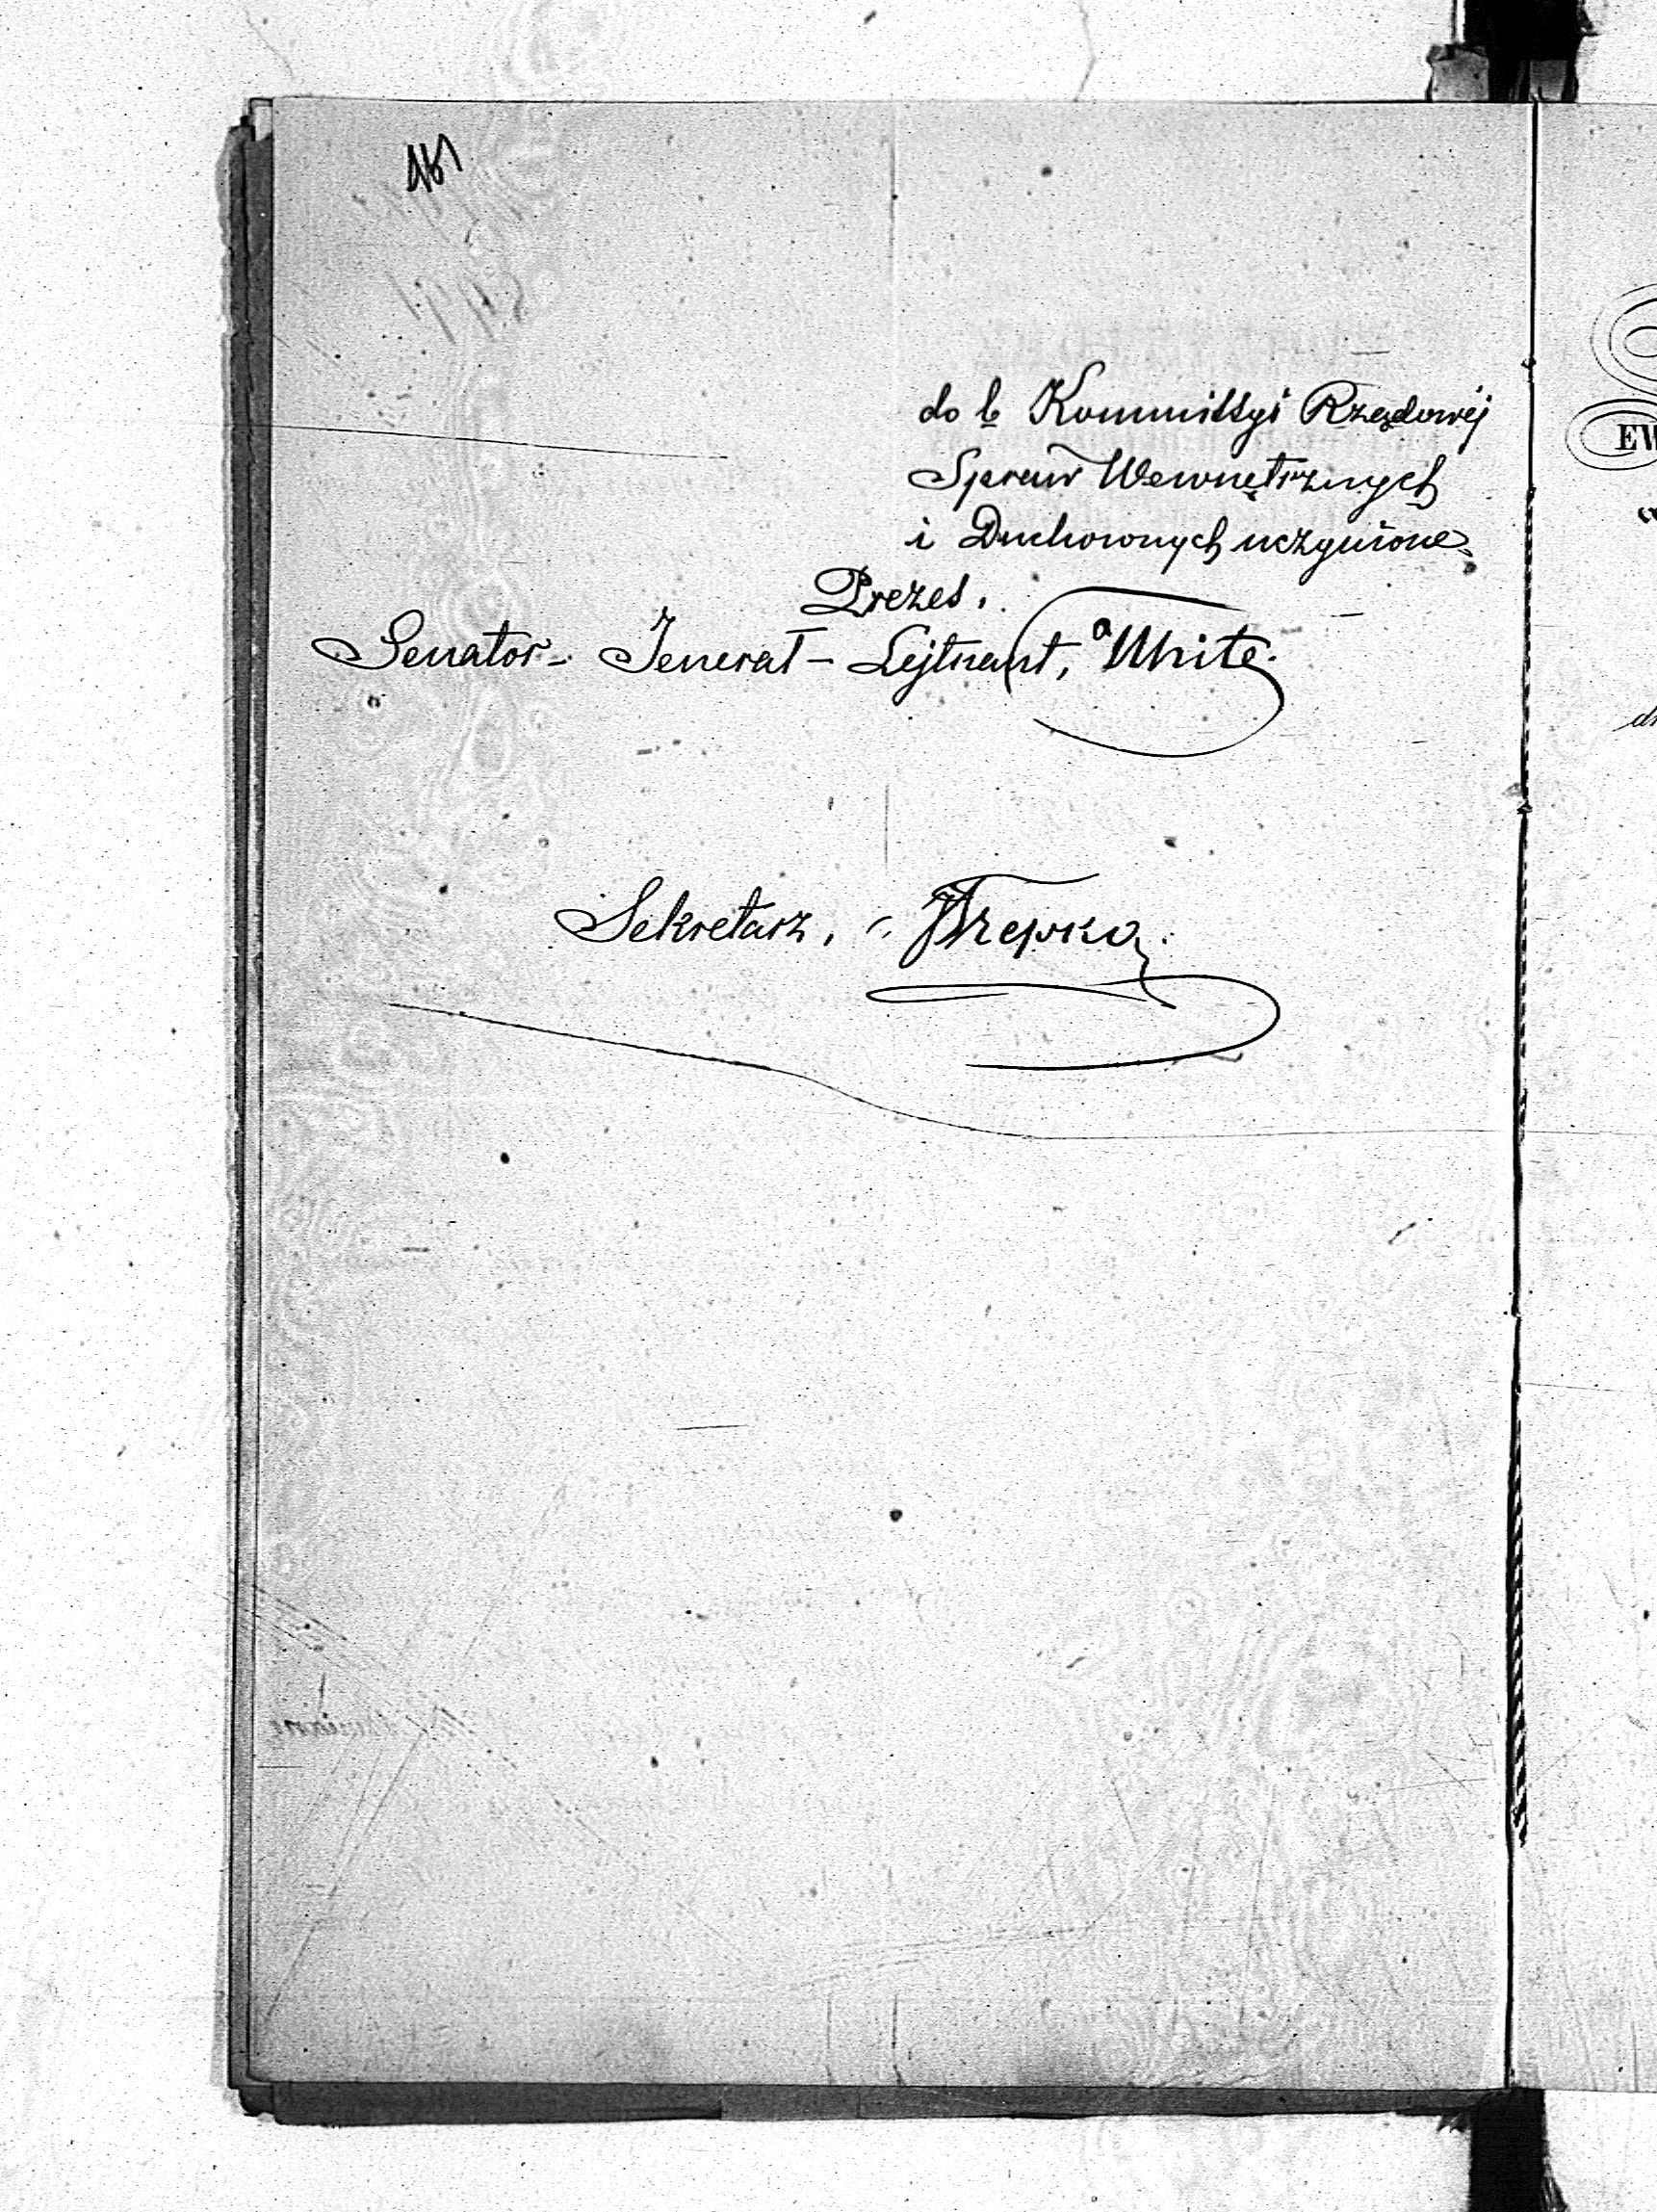 461
do b. Kommissyi Rządowéj
Spraw Wewnętrznych
i Duchownych uczynione
Prezes.
Senator- Jenerał- Lejtnant, White.
Sekretarz,
EW